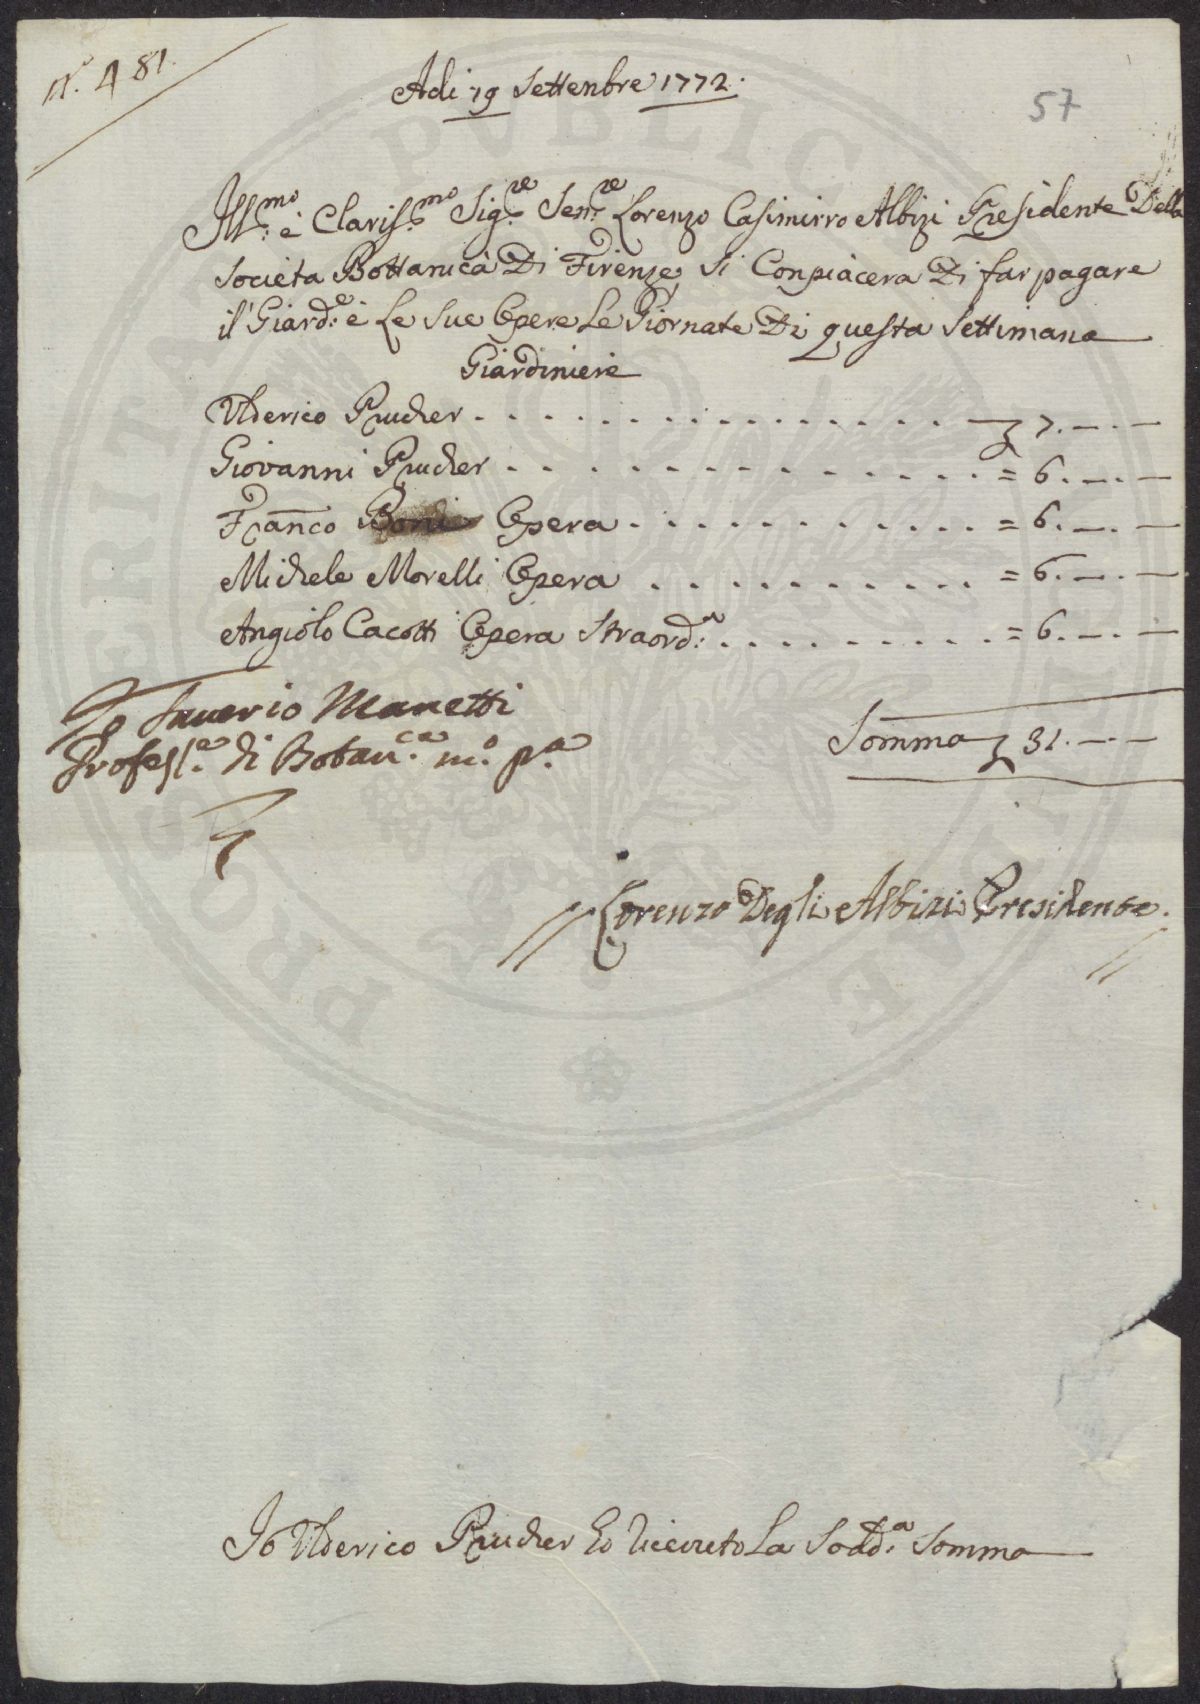 N.° 481.
Adi 19 Settenbre 1772.
57
Ill:mo e Claris:mo Sig:re Sen:re Lorenzo Casimirro Albizi Presidente Della
Societa Bottanica Di Firenze Si Conpiacera Di far pagare
il Giard:e e Le Sue Opere Le Giornate Di questa Settimana
Giardiniere
Ulderico Prucher . . . . . . . . . . . . . . . . £ 7.—.—
Giovanni Prucher . . . . . . . . . . . . . . = 6.—.—
Franco Boni Opera . . . . . . . . . . . . = 6.—.—
Michele Morelli Opera . . . . . . . . . . = 6.—.—
Angiolo Cacotti Opera Straord:a . . . . . . . . . = 6.—.—
Io Saverio Manetti
Somma £ 31.—.—
Profess.e di Botan.ca m.o p.a
Lorenzo Degli Albizi Presidente.
PVBLICAE
PROSPERITATI
Io Ulderico Prucher ho riceuto La Sodd:a Somma